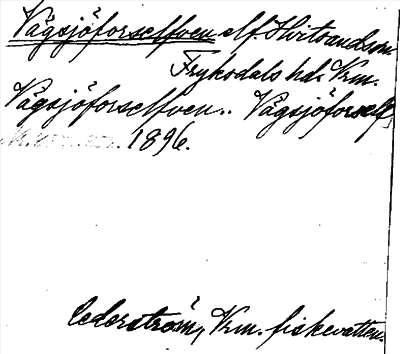 Vägsjöforselfven elf. Hvitsand sn
Fryksdals hd. Vrm.
Vägsjöforselfven.. Vägsjöforself
1896.
Cederström, Vrm. fiskevatten.